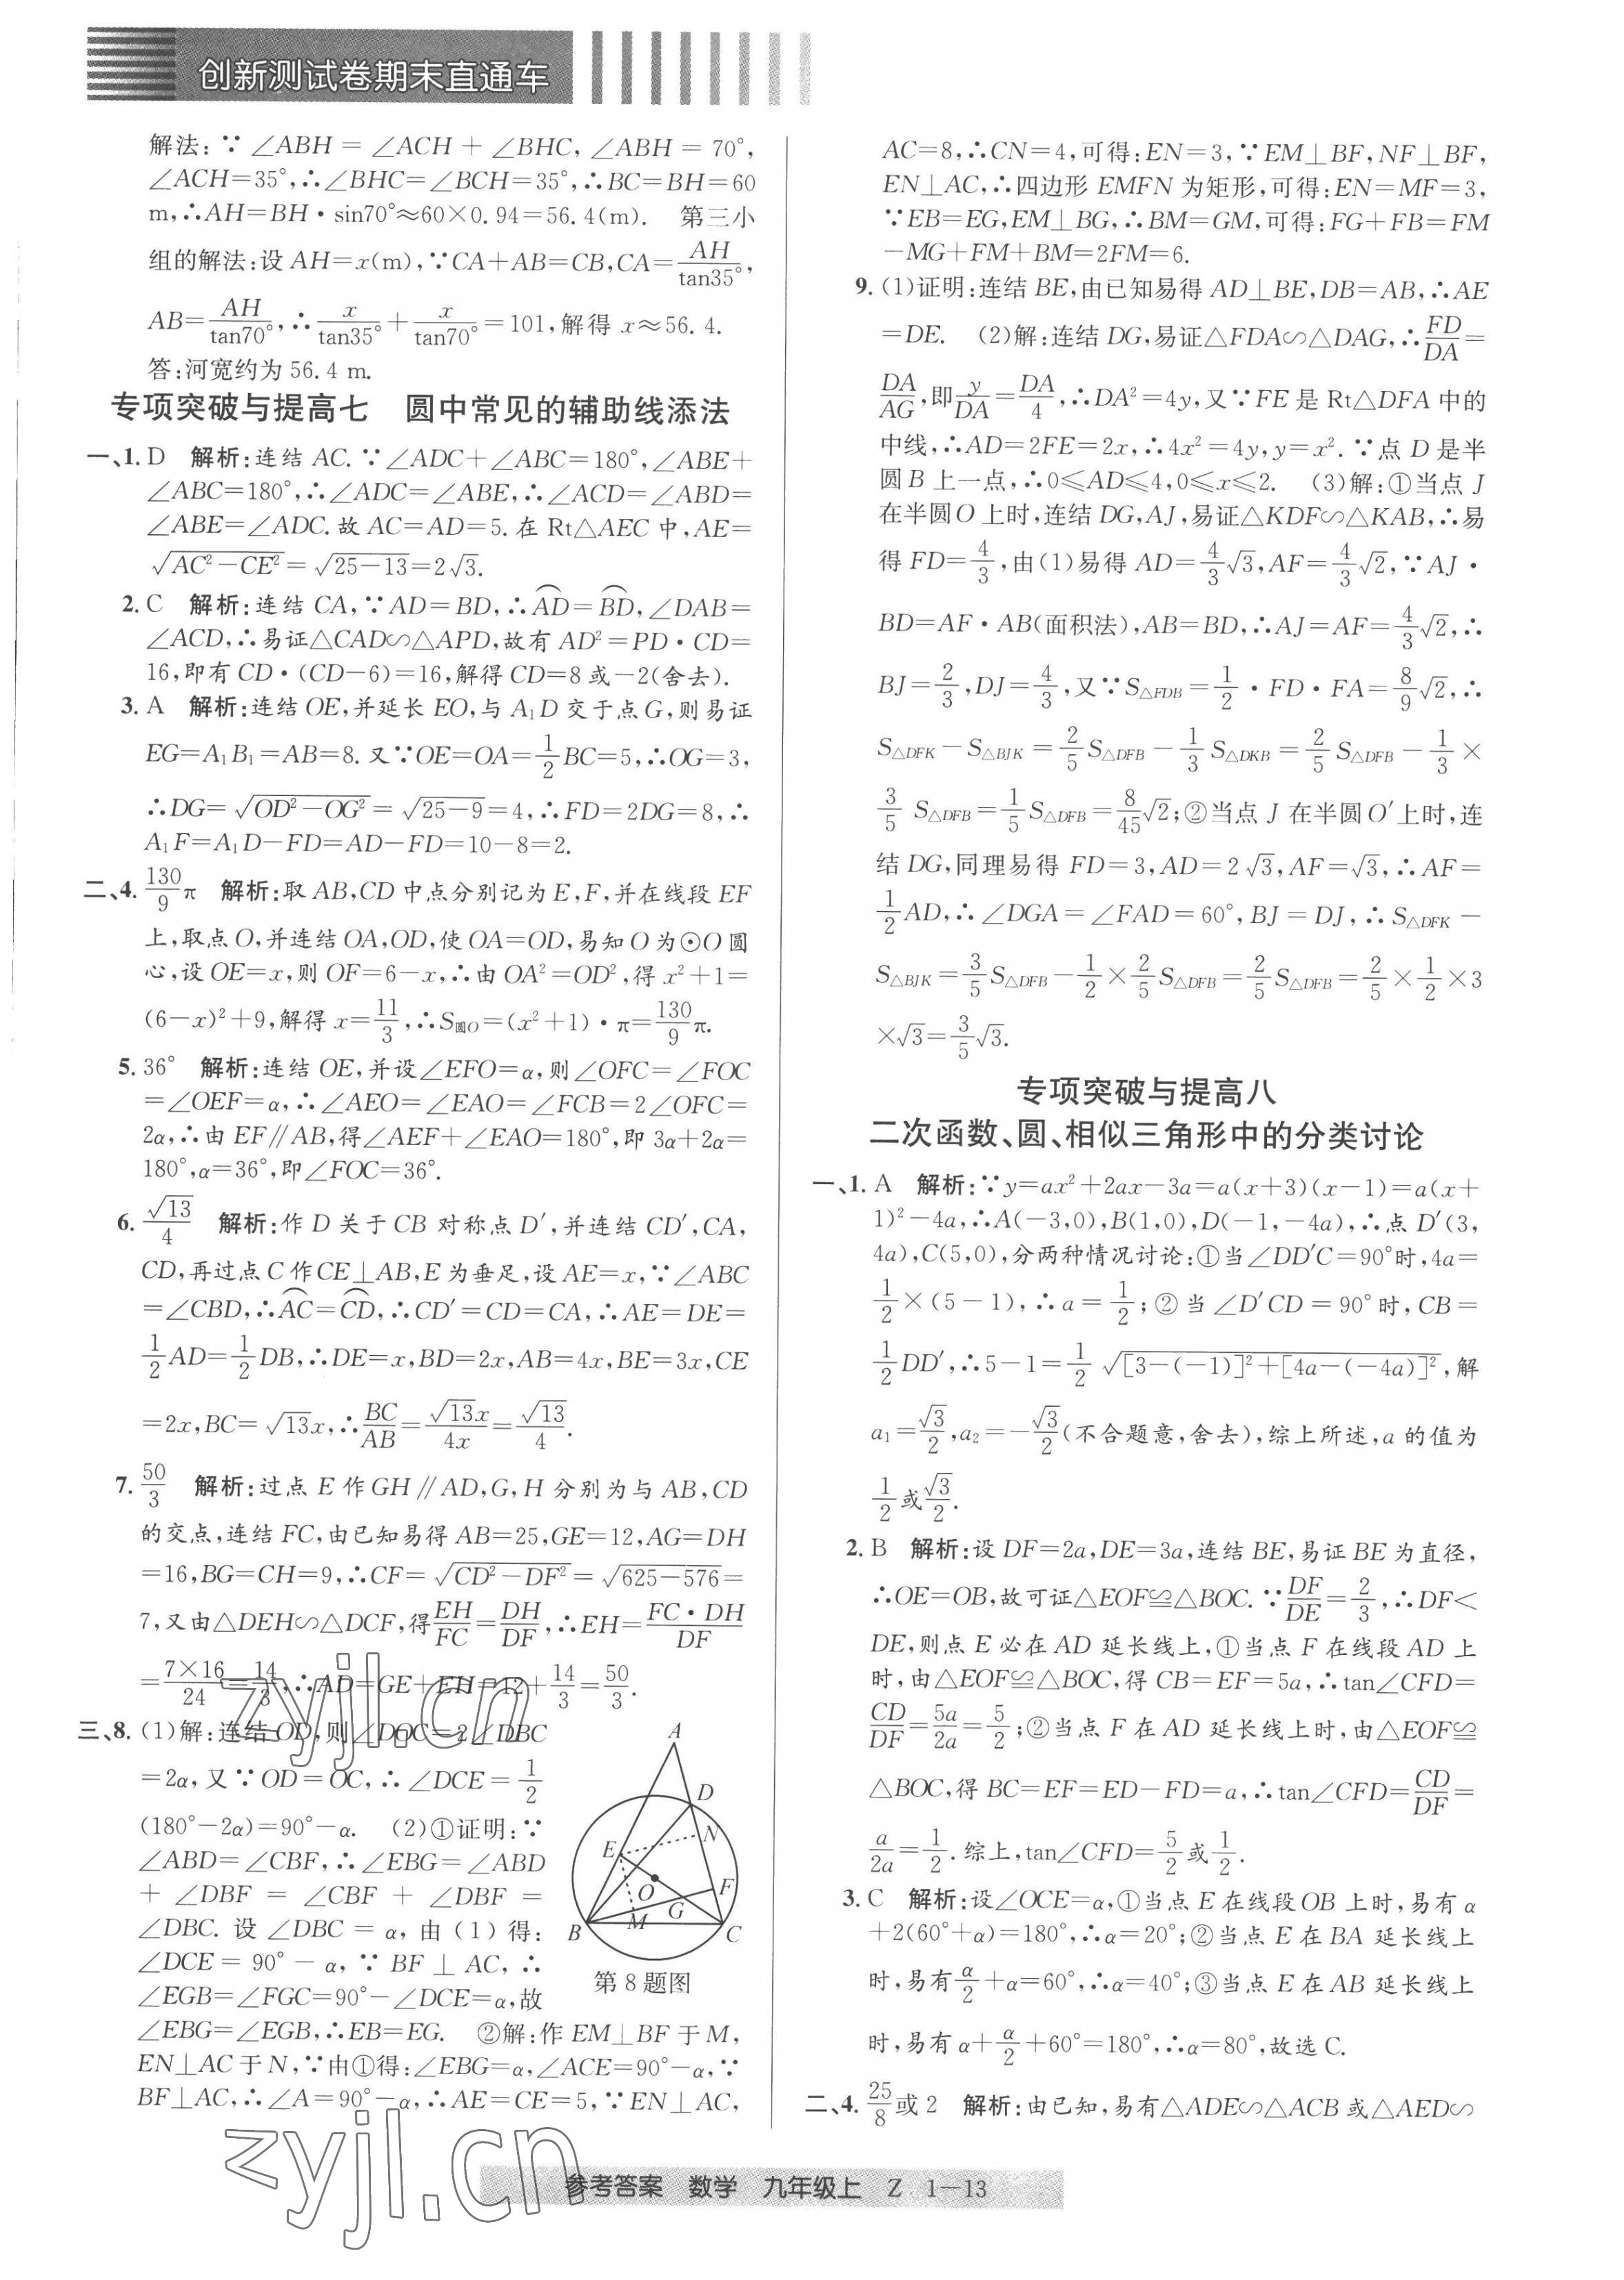 创新测试卷期末直通车
解法:∵∠ABH=∠ACH+∠BHC,∠ABH=70°,
∠ACH=35°,∴∠BHC=∠BCH=35°,∴BC=BH=60
m,∴AH=BH·sin70°≈60×0.94=56.4(m). 第三小
组的解法:设AH=x(m),∵CA+AB=CB,CA=AH/tan35°,
AB=AH/tan70°,∴x/tan35°+x/tan70°=101,解得x≈56.4.
答:河宽约为56.4 m.
专项突破与提高七 圆中常见的辅助线添法
一、1. D 解析:连结AC.∵∠ADC+∠ABC=180°,∠ABE+
∠ABC=180°,∴∠ADC=∠ABE,∴∠ACD=∠ABD=
∠ABE=∠ADC.故AC=AD=5.在Rt△AEC中,AE=
√(AC²-CE²)=√(25-13)=2√3.
2. C 解析:连结CA,∵AD=BD,∴⌒AD=⌒BD,∠DAB=
∠ACD,∴易证△CAD∽△APD,故有AD²=PD·CD=
16,即有CD·(CD-6)=16,解得CD=8或-2(舍去).
3. A 解析:连结OE,并延长EO,与A₁D交于点G,则易证
EG=A₁B₁=AB=8.又∵OE=OA=1/2BC=5,∴OG=3,
∴DG=√(OD²-OG²)=√(25-9)=4,∴FD=2DG=8,∴
A₁F=A₁D-FD=AD-FD=10-8=2.
二、4. 130/9π 解析:取AB,CD中点分别记为E,F,并在线段EF
上,取点O,并连结OA,OD,使OA=OD,易知O为⊙O圆
心,设OE=x,则OF=6-x,∴由OA²=OD²,得x²+1=
(6-x)²+9,解得x=11/3,∴S圆O=(x²+1)·π=130/9π.
5. 36° 解析:连结OE,并设∠EFO=α,则∠OFC=∠FOC
=∠OEF=α,∴∠AEO=∠EAO=∠FCB=2∠OFC=
2α,∴由EF∥AB,得∠AEF+∠EAO=180°,即3α+2α=
180°,α=36°,即∠FOC=36°.
6. √13/4 解析:作D关于CB对称点D′,并连结CD′,CA,
CD,再过点C作CE⊥AB,E为垂足,设AE=x,∵∠ABC
=∠CBD,∴⌒AC=⌒CD,∴CD′=CD=CA,∴AE=DE=
1/2AD=1/2DB,∴DE=x,BD=2x,AB=4x,BE=3x,CE
=2x,BC=√13x,∴BC/AB=√13x/4x=√13/4.
7. 50/3 解析:过点E作GH∥AD,G,H分别为与AB,CD
的交点,连结FC,由已知易得AB=25,GE=12,AG=DH
=16,BG=CH=9,∴CF=√(CD²-DF²)=√(625-576)=
7,又由△DEH∽△DCF,得EH/FC=DH/DF,∴EH=FC·DH/DF
=7×16/24=14/3,∴AD=GE+EH=12+14/3=50/3.
三、8. (1)解:连结OD,则∠DOC=2∠DBC
=2α,又∵OD=OC,∴∠DCE=1/2
(180°-2α)=90°-α. (2)①证明:∵
∠ABD=∠CBF,∴∠EBG=∠ABD
+∠DBF=∠CBF+∠DBF=
∠DBC.设∠DBC=α,由(1)得:
∠DCE=90°-α,∵BF⊥AC,∴
∠EGB=∠FGC=90°-∠DCE=α,故
∠EBG=∠EGB,∴EB=EG. ②解:作EM⊥BF于M,
EN⊥AC于N,∵由①得:∠EBG=α,∠ACE=90°-α,∵
BF⊥AC,∴∠A=90°-α,∴AE=CE=5,∵EN⊥AC,
A
D
E
N
O
F
M
G
B
C
第8题图
AC=8,∴CN=4,可得:EN=3,∵EM⊥BF,NF⊥BF,
EN⊥AC,∴四边形EMFN为矩形,可得:EN=MF=3,
∵EB=EG,EM⊥BG,∴BM=GM,可得:FG+FB=FM
-MG+FM+BM=2FM=6.
9. (1)证明:连结BE,由已知易得AD⊥BE,DB=AB,∴AE
=DE. (2)解:连结DG,易证△FDA∽△DAG,∴FD/DA=
DA/AG,即y/DA=DA/4,∴DA²=4y,又∵FE是Rt△DFA中的
中线,∴AD=2FE=2x,∴4x²=4y,y=x².∵点D是半
圆B上一点,∴0≤AD≤4,0≤x≤2. (3)解:①当点J
在半圆O上时,连结DG,AJ,易证△KDF∽△KAB,∴易
得FD=4/3,由(1)易得AD=4/3√3,AF=4/3√2,∵AJ·
BD=AF·AB(面积法),AB=BD,∴AJ=AF=4/3√2,∴
BJ=2/3,DJ=4/3,又∵S△FDB=1/2·FD·FA=8/9√2,∴
S△DFK-S△BJK=2/5S△DFB-1/3S△DKB=2/5S△DFB-1/3×
3/5S△DFB=1/5S△DFB=8/45√2;②当点J在半圆O′上时,连
结DG,同理易得FD=3,AD=2√3,AF=√3,∴AF=
1/2AD,∴∠DGA=∠FAD=60°,BJ=DJ,∴S△DFK-
S△BJK=3/5S△DFB-1/2×2/5S△DFB=2/5S△DFB=2/5×1/2×3
×√3=3/5√3.
专项突破与提高八
二次函数、圆、相似三角形中的分类讨论
一、1. A 解析:∵y=ax²+2ax-3a=a(x+3)(x-1)=a(x+
1)²-4a,∴A(-3,0),B(1,0),D(-1,-4a),∴点D′(3,
4a),C(5,0),分两种情况讨论:①当∠DD′C=90°时,4a=
1/2×(5-1),∴a=1/2;②当∠D′CD=90°时,CB=
1/2DD′,∴5-1=1/2√([3-(-1)]²+[4a-(-4a)]²),解
a₁=√3/2,a₂=-√3/2(不合题意,舍去),综上所述,a的值为
1/2或√3/2.
2. B 解析:设DF=2a,DE=3a,连结BE,易证BE为直径,
∴OE=OB,故可证△EOF≌△BOC.∵DF/DE=2/3,∴DF<
DE,则点E必在AD延长线上,①当点F在线段AD上
时,由△EOF≌△BOC,得CB=EF=5a,∴tan∠CFD=
CD/DF=5a/2a=5/2;②当点F在AD延长线上时,由△EOF≌
△BOC,得BC=EF=ED-FD=a,∴tan∠CFD=CD/DF=
a/2a=1/2.综上,tan∠CFD=5/2或1/2.
3. C 解析:设∠OCE=α,①当点E在线段OB上时,易有α
+2(60°+α)=180°,∴α=20°;②当点E在BA延长线上
时,易有α/2+α=60°,∴α=40°;③当点E在AB延长线上
时,易有α+α/2+60°=180°,∴α=80°,故选C.
二、4. 25/8或2 解析:由已知,易有△ADE∽△ACB或△AED∽
参考答案 数学 九年级上 Z 1-13
zyjl.cn
zyjl.cn